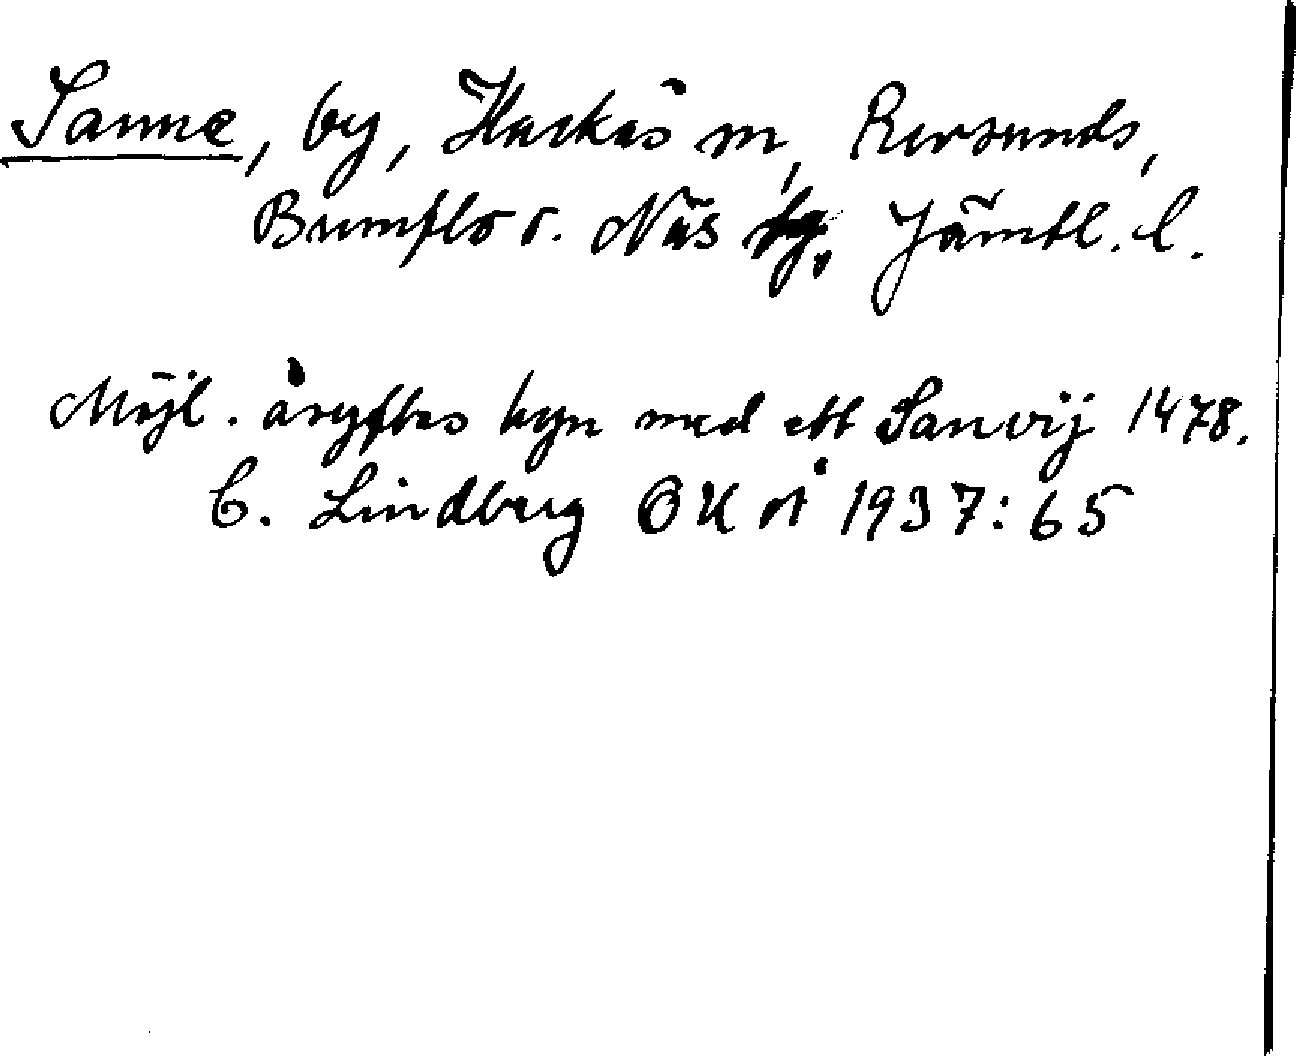 Sanne, by, Hackås sn, Revsunds,
Brunflo o. Näs tg, Jämtl. l.
Möjl. åsyftas byn med ett Sanvij 1478.
C. Lindberg OUÅ 1937: 65